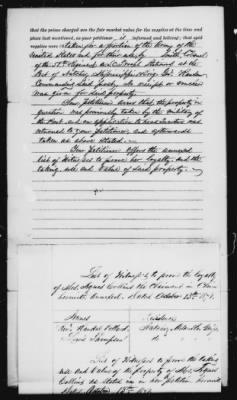 that the prices charged are the fair market value for the supplies at the time and
place last mentioned, as your petitioner is informed and believes; that said
supplies were taken for a portion of the Army of the
United States and for their use by
of the 58th Regiment U.S. Colored Infantry at the
Post of Natchez Mississippi
Commanding said post, no receipt or voucher
was given for said property.
Your Petitioner avers that the property in
question was previously taken by the Military of
the Post and on application to head quarters was
returned to your Petitioner and afterwards
taken as above stated.
Your Petitioner offers the annexed
list of witnesses to prove her loyalty and the
taking, use and value of said property.
List of Witnesses to prove the loyalty
of Mrs. Agnes Collins the Claimant in
herewith annexed. Dated October 13th 1871.
Names Residence
Natchez
List of Witnesses to prove the taking
use and value of the property of Mrs. Agnes
Collins as stated in her petition herewith
October 13th 1871